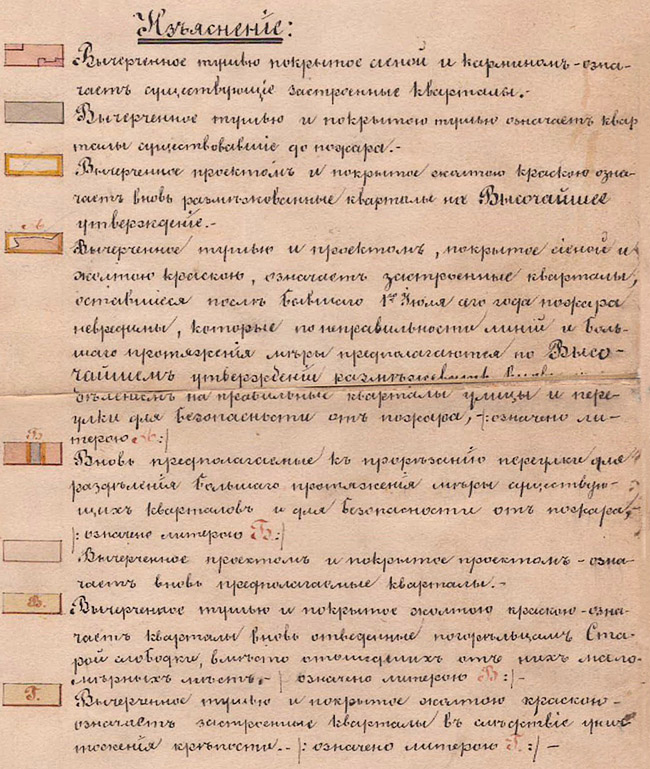 Изъясненіе:
Вычерченное тушью покрытое сіеной и карминомъ - озна-
чаетъ существующіе застроенные кварталы.-
Вычерченное тушью и покрытою тушью означаетъ квар
талы существовавшіе до пожара.-
Вычерченное проектомъ и покрытое жолтою краскою озна-
чаетъ вновь размежованные кварталы на Высочайшее
утвержденіе.-
А.
Вычерченное тушью и проектомъ, покрытое сіеной и
жолтою краскою, означаетъ застроенные кварталы,
оставшіеся послѣ бывшаго 1го Іюля сего года пожара
невредимы, которые по неправильности линій и боль-
шаго протяженія мѣры предполагаются по Высо-
чайшемъ утвержденіи размѣжевать
дѣленіемъ на правильные кварталы улицы и пере-
улки для безопасности отъ пожара, /:означено ли-
терою А:/
Б.
Вновь предполагаемые къ прорѣзанію переулки для
раздѣленія большаго протяженія мѣры существую-
щихъ кварталовъ и для безопасности отъ пожара,
/: означено литерою Б:/
Вычерченное проектомъ и покрытое проектомъ - озна-
чаетъ вновь предполагаемые кварталы.-
В.
Вычерченное тушью и покрытое жолтою краскою - озна-
чаетъ кварталы вновь отведенные погорѣльцамъ Ста-
рой слободки, вмѣсто отошедшихъ отъ нихъ мало-
мѣрныхъ мѣстъ. - /: означено литерою В:/-
Г.
Вычерченное тушью и покрытое жолтою краскою -
означаетъ застроенные кварталы въ слѣдствіе унич
тоженія крѣпости. - /: означено литерою Г:/-